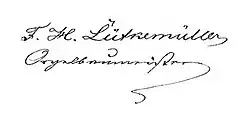 F. H. Lütkemüller
Orgelbaumeister